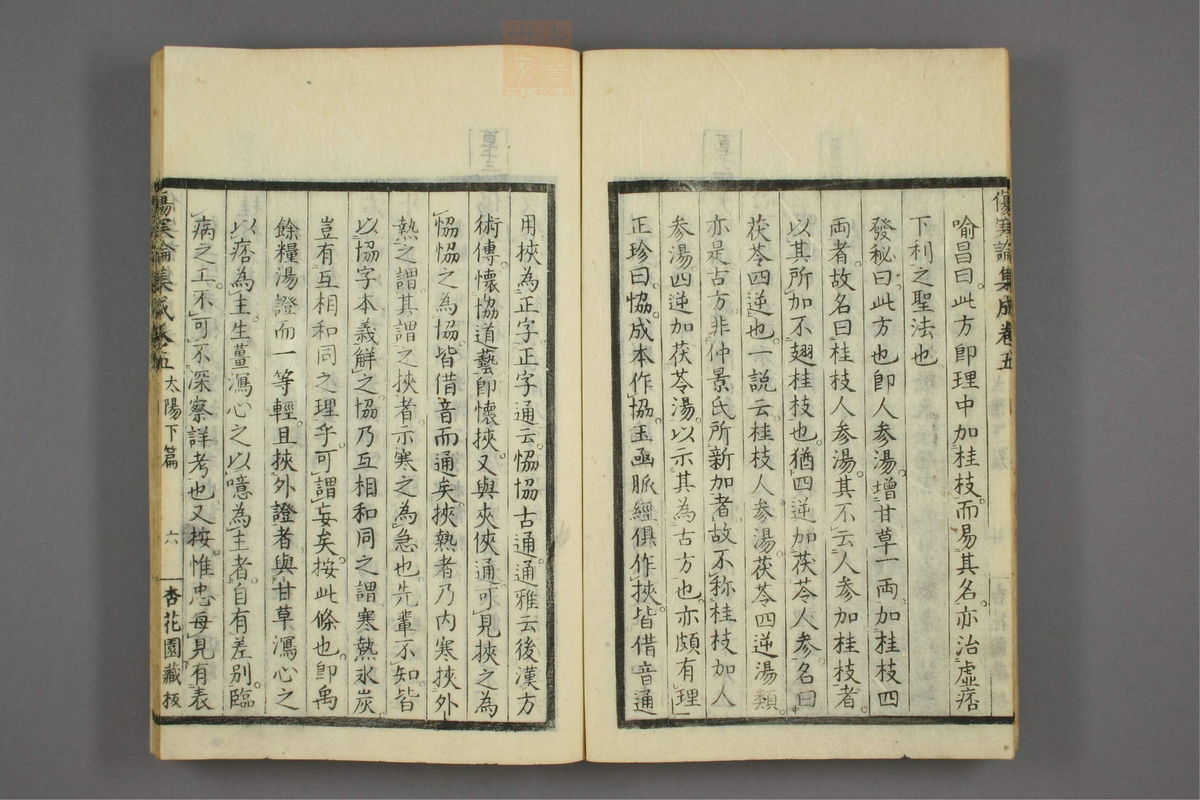 傷寒論集成卷五
喻昌曰。此方卽理中加桂枝。而易其名。亦治虛痞
下利之聖法也
發秘曰。此方也卽人參湯。增甘草一兩。加桂枝四
兩者。故名曰桂枝人參湯。其不云人參加桂枝者。
以其所加不翅桂枝也。猶四逆加茯苓人參。名曰
茯苓四逆也。一說云。桂枝人參湯。茯苓四逆湯類。
亦是古方。非仲景氏所新加者。故不稱桂枝加人
參湯。四逆加茯苓湯。以示其爲古方也。亦頗有理
正珍曰。恊。成本作協。玉函脈經俱作挾。皆借音通
用。挾爲正字。正字通云。恊協古通。通雅云。後漢方
術傳。懷協道藝。卽懷挾。又與夾俠通。可見挾之爲
恊。恊之爲協。皆借音而通矣。挾熱者。乃內寒挾外
熱之謂。其謂之挾者。示寒之爲急也。先輩不知。皆
以協字本義解之。協乃互相和同之謂。寒熱氷炭。
豈有互相和同之理乎。可謂妄矣。按此條也。卽禹
餘糧湯證而一等輕。且挾外證者。與甘草瀉心之
以痞爲主。生薑瀉心之以噫爲主者。自有差別。臨
病之工。不可不深察詳考也。又按。惟忠每見有表
傷寒論集成卷五 太陽下篇 六 杏花園藏板